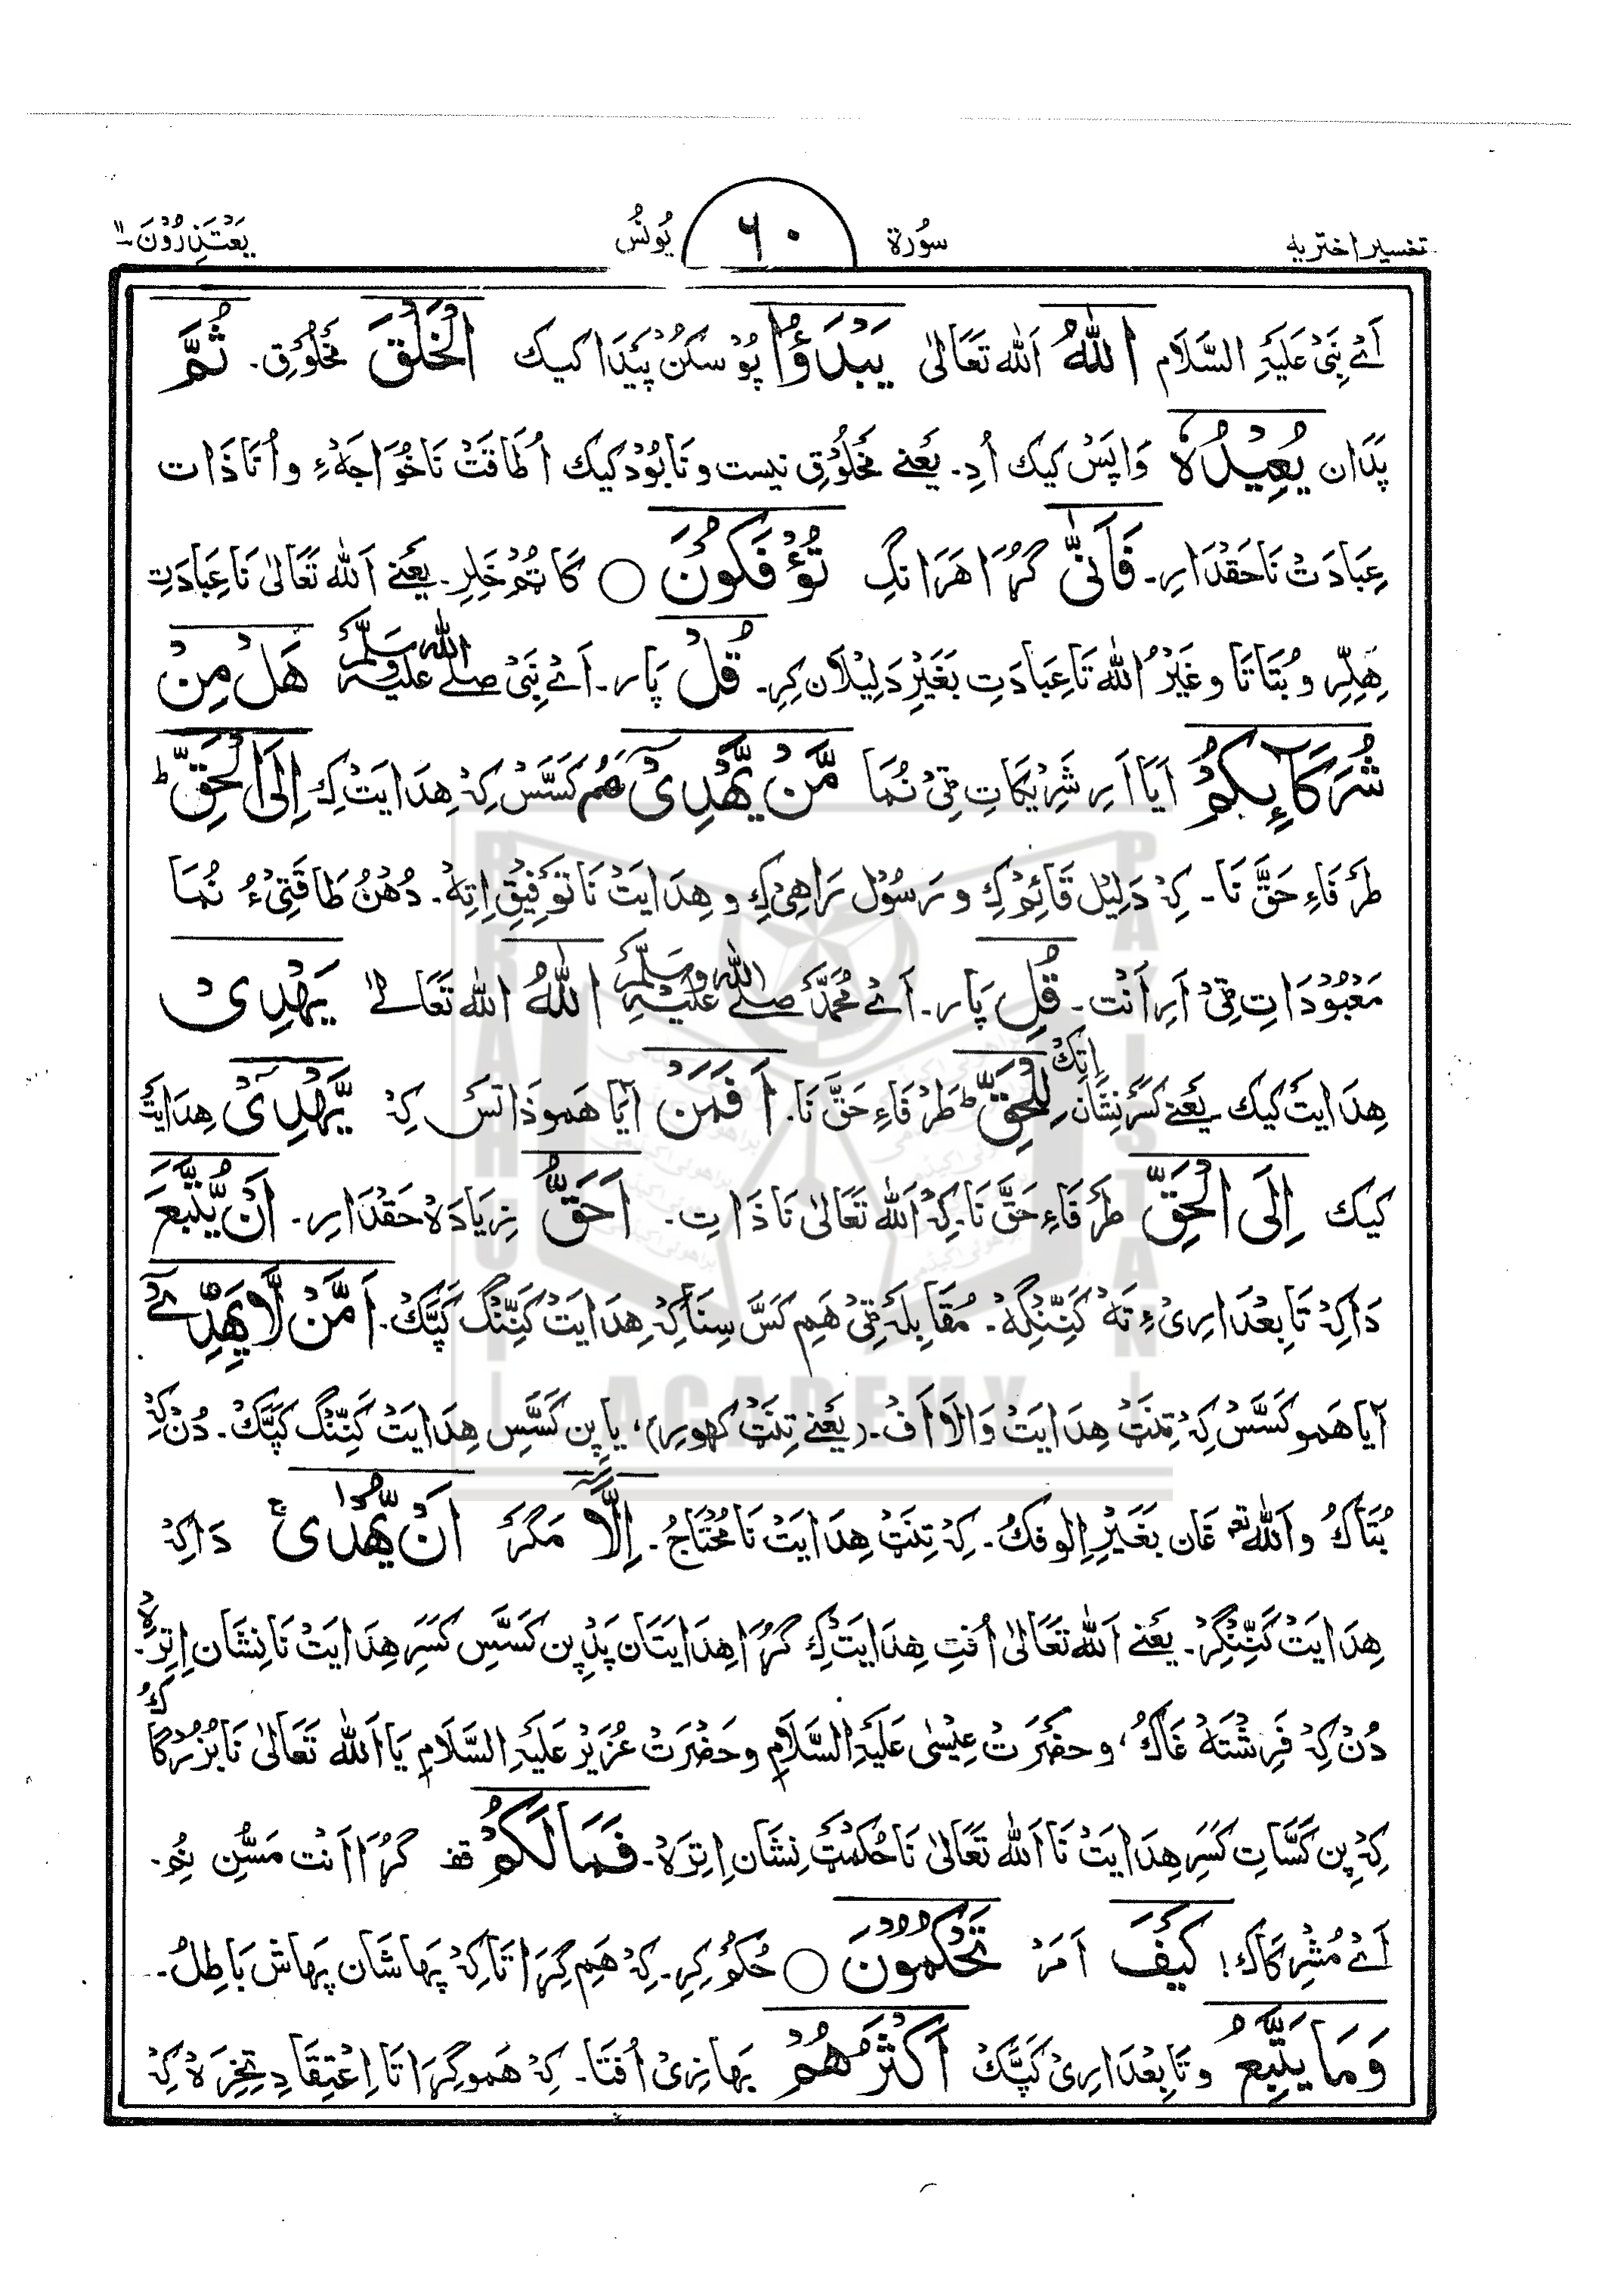 تفسیر اختریه سُورة ٦٠ یُونُس یَعْتَذِرُوْنَ ۱۱
اَےْ نَبِیْ عَلَیْہِ السَّلَام اللّٰهُ اَللّٰه تَعَالٰی یَبْدَؤُا پُوْسکُنْ پَیْدَا کیک الْخَلْقَ مَخْلُوْقِ۔ ثُمَّ
پَدَان یُعِیْدُهٗ وَاپَسْ کیک اُدِ۔ یَعْنے مَخْلُوْقِ نیست و نَابُوْد کیک اُ طَاقَتْ نَا خُوَاجَهْ ءِ و اُنَا ذَات
عِبَادَتْ نَا حَقْدَارِ۔ فَاَنّٰی گُرَا هَرَانگِ تُؤْفَکُوْنَ ○ کَا نُمْ خَلِرِ۔ یَعْنے اَللّٰه تَعَالٰی نَا عِبَادَتِ
هِلِّرِ و بُتَاتَا و غَیْرُ اللّٰه تَا عِبَادَتِ بَغَیْرِ دَلِیْلَان کِرِ۔ قُلْ پَار۔ اَےْ نَبِیْ صلے اللّٰه علیہ وسلم هَلْ مِنْ
شُرَکَآئِکُمْ اَیَا اَرِ شَرِیْکَاتِ قِیْ نُمَا مَّنْ یَّهْدِیْٓ هُم کَسَّسْ کِہْ هِدَایَتْ کِ اِلَی الْحَقِّ ؕ
طَرَفَاءِ حَقَّ نَا۔ کِہْ دَلِیْل قَائِمْ کِ و رَسُوْل رَاهِیْ کِ و هِدَایَتْ نَا تَوْفِیْقِ اِتِهْ۔ دُهُنْ طَاقَتِیْ ءُ نُمَا
مَعْبُوْدَاتِ قِیْ اَرِ اَنْت۔ قُلِ پَار۔ اَےْ مُحَمَّدْ صلے اللّٰه علیہ وسلم اللّٰهُ اللّٰه تَعَالٰے یَهْدِیْ
هِدَایَتْ کیک یَعْنے کَسَرْ نِشَان اِتِکْ لِلْحَقِّ ؕ طَرَفَاءِ حَقَّ نَا۔ اَفَمَنْ آیَا هَمو ذَاتَس کِہْ یَّهْدِیْٓ هِدَایَتْ
کیک اِلَی الْحَقِّ طَرَفَاءِ حَقَّ نَا۔ کِہْ اَللّٰه تَعَالٰی نَا ذَاتِ۔ اَحَقُّ زِیَادَهْ حَقْدَارِ۔ اَنْ یُّتَّبَعَ
دَاکِہْ تَابِعْدَارِیْ ءِ تَهْ کَنِّنْگِهْ۔ مُقَابِلَہْ قِیْ هَمِ کَسَّ سِنَا کِہْ هِدَایَتْ کَنِّنْگ کَپَّکْ۔ اَمَّنْ لَّا یَهِدِّیْٓ
آیَا هَمو کَسَّسْ کِہْ تِنَتْ هِدَایَتْ وَالَا اَفْ۔ (یَعْنے تِنَتْ کهورِ)، یا پِن کَسَّسِ هِدَایَتْ کَنِّنْگ کَپَّکْ۔ دُنْ کِہْ
بُتَّاکْ و اَللّٰه تع عَان بَغَیْرِ اِلوفکُ۔ کِہْ تِنَتْ هِدَایَتْ نَا مُحْتَاجُ۔ اِلَّآ مَگَرْ اَنْ یُّهْدٰی ۚ دَاکِہْ
هِدَایَتْ کَنِّنْگِرْ۔ یَعْنے اَللّٰه تَعَالٰی اُفْتِ هِدَایَتْ کِ گُرَا هِدَایَتَان پَدِ پِن کَسَّسِ کَسَرِ هِدَایَتْ نَا نِشَان اِتِرَهْ۔
دُنْ کِہْ فَرِشْتَهْ غَاکُ، و حضْرَتْ عِیْسٰی عَلَیْہِ السَّلَام و حَضْرَتْ عُزَیْر عَلَیْہِ السَّلَام یَا اَللّٰه تَعَالٰی نَا بُزُرْگَاکْ
کِہْ پِن کَسَّاتِ کَسَرِ هِدَایَتْ نَا اَللّٰه تَعَالٰی نَا حُکْمَتْ نِشَان اِتِرَهْ۔ فَمَا لَکُمْ قف گُرَا اَنْت مَسُّن نُم۔
اَےْ مُشْرِکَاک! کَیْفَ اَمَرْ تَحْکُمُوْنَ ○ حُکْمُ کِرِ۔ کِہْ هَمِ گِرَاتَا کِہْ پَهاشَان پَهاش بَاطِلُ۔
وَمَا یَتَّبِعُ و تَابِعْدَارِیْ کَپَّکْ اَکْثَرُهُمْ بَهازِیْ اُفْتَا۔ کِہْ هَمو گِرَاتَا اِعْتِقَادِ تِخِرَهْ کِہْ